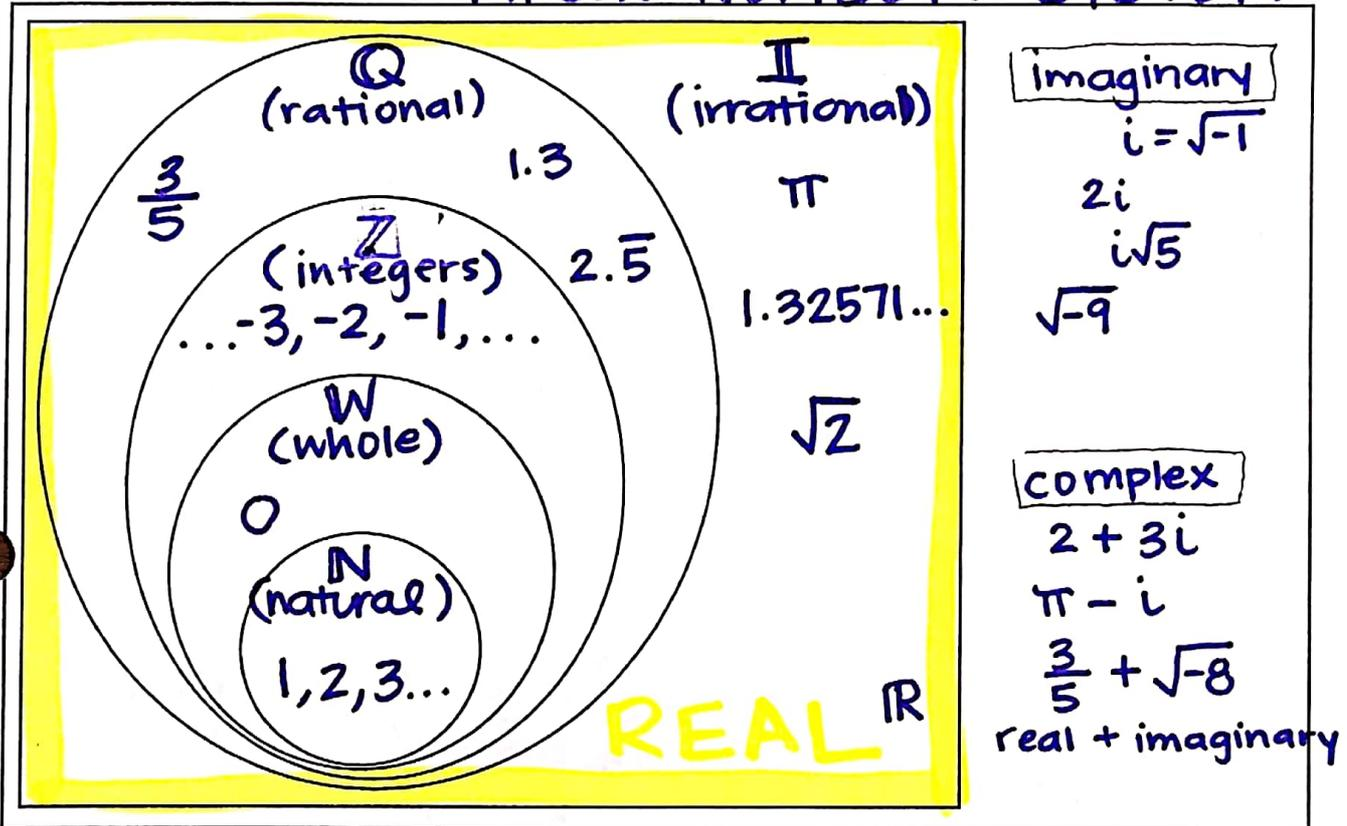 ℚ
(rational)
3/5
1.3
ℤ
(integers)
2.5̅
...-3, -2, -1, ...
W
(whole)
0
ℕ
(natural)
1, 2, 3...
𝕀
(irrational)
π
1.32571...
√2
REAL ℝ
imaginary
i = √-1
2i
i√5
√-9
complex
2 + 3i
π - i
3/5 + √-8
real + imaginary